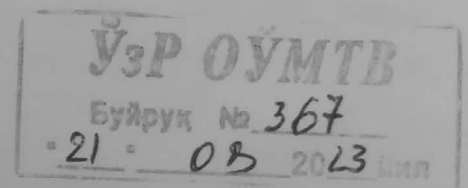 ЎзР ОЎМТВ
Буйруқ № 367
"21" 08 2023 йил